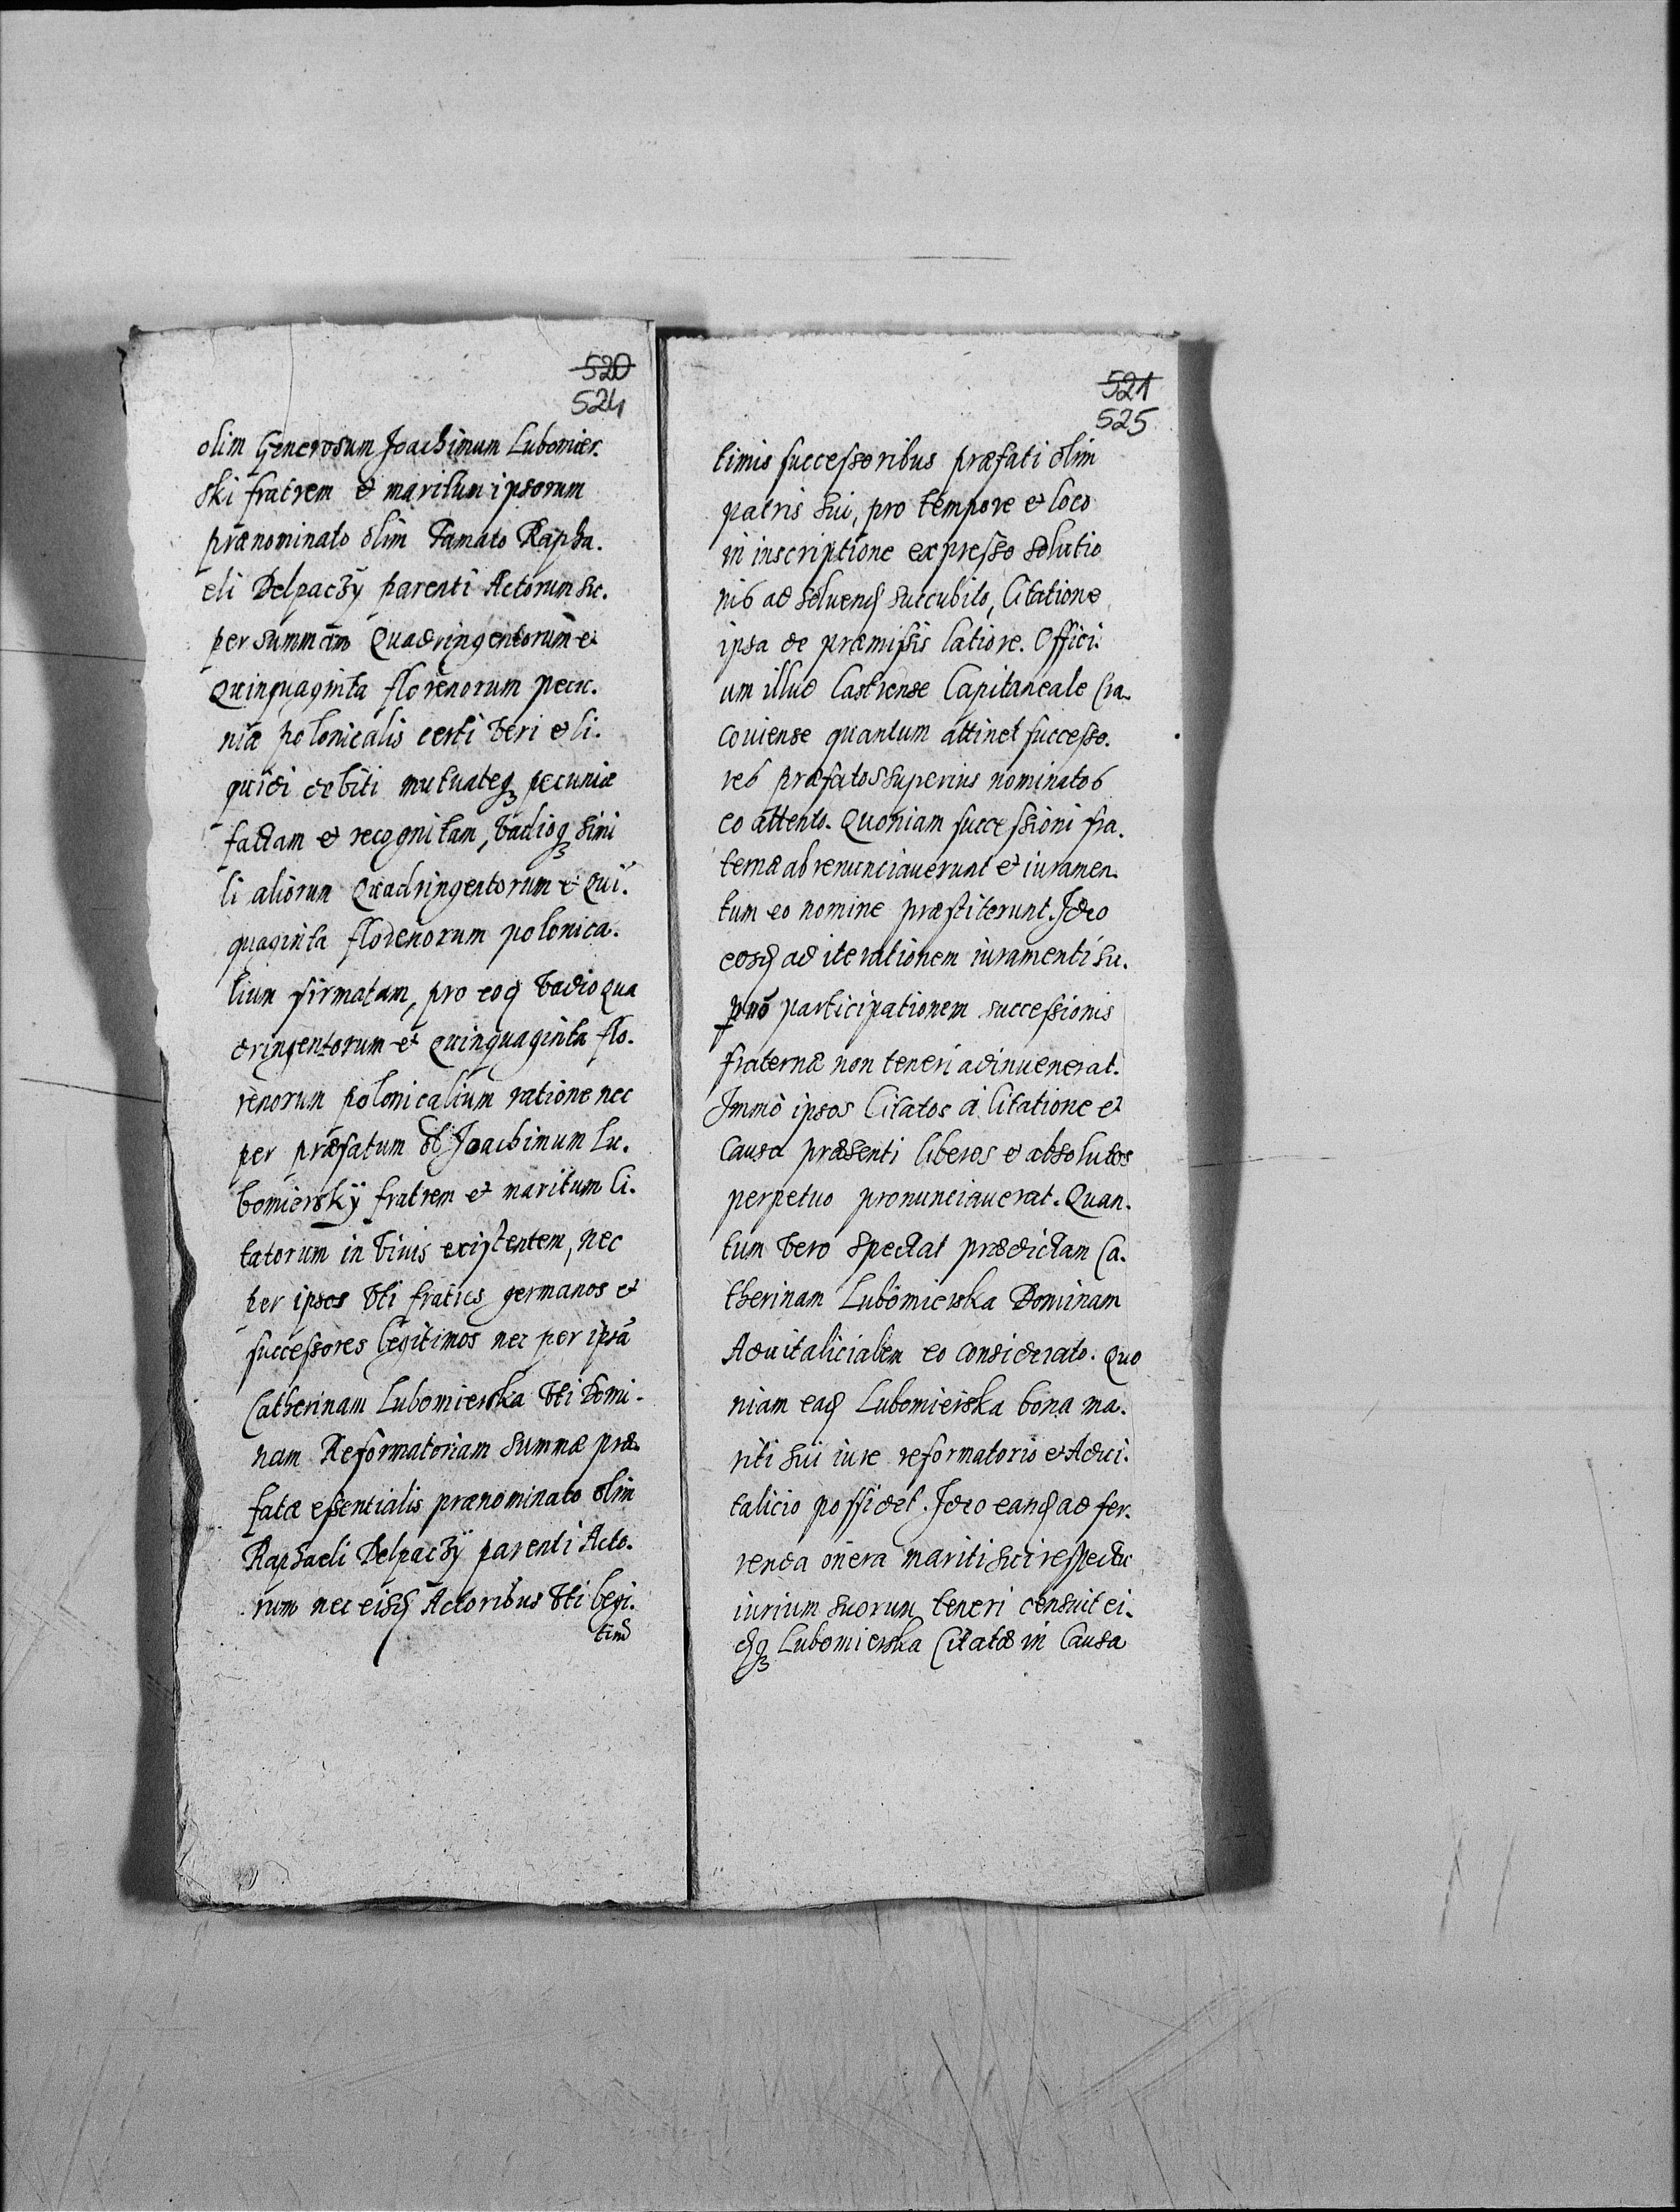 520
524
olim Generosum Joachimum Lubomier.
ski fratrem et maritum ipsorum
prænominato olim Famato Rapha.
eli Delpaczÿ parenti Actorum su.
per summam Quadringentorum et
Quinquaginta florenorum pecu.
niæ polonicalis certi veri et li.
quidi debiti mutuateq₃ pecuniæ
factam et recognitam, vadioq₃ simi
li aliorum Quadringentorum et Qui.
quaginta florenorum polonica.
lium firmatam, pro eoq vadio qua
dringentorum et quinquaginta flo.
renorum polonicalium ratione nec
per præfatum ol Joachimum Lu.
bomierskÿ fratrem et maritum Ci.
tatorum in vivis existentem, nec
per ipsos uti fratres germanos et
successores legitimos nec per ipsã
Catherinam Lubomierska uti Domi.
nam Reformatoriam summæ præ.
fatæ essentialis prænominato olim
Raphaeli Delpaczÿ parenti Acto.
rum nec eisd Actoribus uti legi.
timis
521
525
timis successoribus præfati olim
patris sui, pro tempore et loco
in inscriptione expresso solutio
nis ad solvend succubito, Citatione
ipsa de præmissis latiore. Offici.
um illud Castrense Capitaneale Cra.
coviense quantum attinet successo.
res præfatos superius nominatos
eo attento. Quoniam successioni fra.
ternæ abrenunciaverunt et iuramen.
tum eo nomine præstiterunt. Ideo
eosd ad iterationem iuramenti su.
per participationem successionis
fraternæ non teneri adinvenerat.
Immo ipsos Citatos a Citatione et
Causa præsenti liberos et absolutos
perpetuo pronunciaverat. Quan.
tum vero spectat prædictam Ca.
therinam Lubomierska Dominam
Advitalicialem eo considerato. Quo
niam ead Lubomierska bona ma.
riti sui iure reformatorio et Advi.
talicio possidet. Ideo eand ad fer.
renda onera mariti sui respectu
iurium suorum teneri censuit ei.
dq₃ Lubomierska Citatæ in Causa